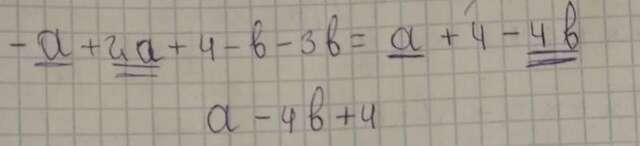 -a + 2a + 4 - b - 3b = a + 4 - 4b
a - 4b + 4